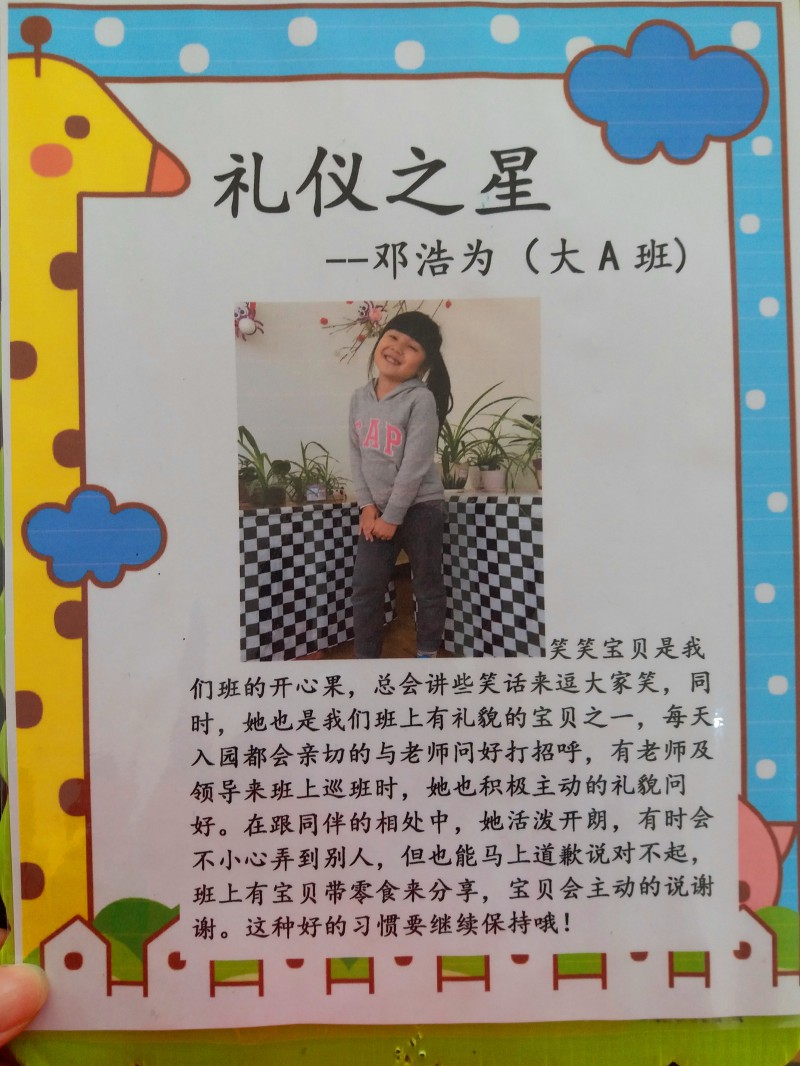 礼仪之星
--邓浩为（大A班）
GAP
笑笑宝贝是我
们班的开心果，总会讲些笑话来逗大家笑，同
时，她也是我们班上有礼貌的宝贝之一，每天
入园都会亲切的与老师问好打招呼，有老师及
领导来班上巡班时，她也积极主动的礼貌问
好。在跟同伴的相处中，她活泼开朗，有时会
不小心弄到别人，但也能马上道歉说对不起，
班上有宝贝带零食来分享，宝贝会主动的说谢
谢。这种好的习惯要继续保持哦！